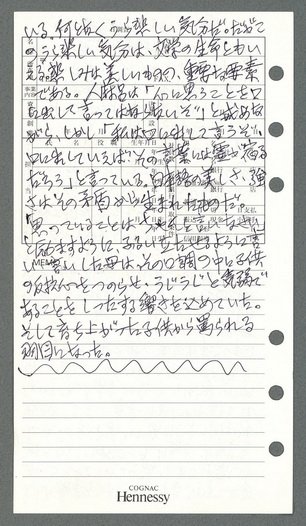 いる、何となくうら悲しい気分だ。だがこ
のうら悲しい気分は、文学の生命ともい
える。悲しみは美しいもので、重要な要素
である。人麻呂は「心に思うことを口
に出して言ってはならないぞ」と戒めな
がら、しかし「私は口に出して言うぞ
口に出していえば、その言葉には霊が宿る
だろう」と言っている。日本語の美しさ、強
さはその矛盾から生まれたものだ。
「思っていることは ちゃんと言いなさい」
と励ますように、あるいは
した母は、その口調の中に子供
の反抗心をつのらせ、うじうじと気弱で
あることをしったする響きを込めていた。
そして育ち上がった子供から罵られる
羽目になった。
MEMO
COGNAC
Hennessy